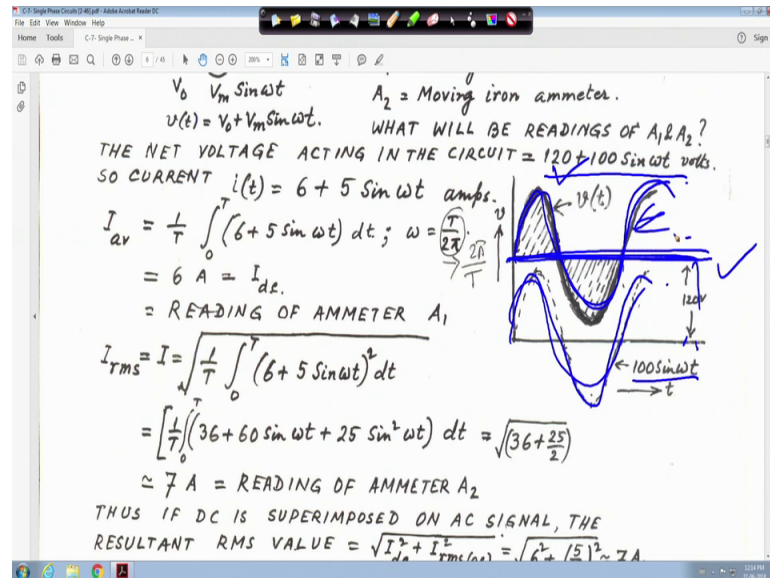 C-7- Single Phase Circuits [2-46].pdf - Adobe Acrobat Reader DC
File Edit View Window Help
Home Tools C-7- Single Phase ... × Sign
6 / 45 200%
V₀ Vₘ Sin ωt
v(t) = V₀ + Vₘ Sin ωt.
A₂ = Moving iron ammeter.
WHAT WILL BE READINGS OF A₁ & A₂ ?
THE NET VOLTAGE ACTING IN THE CIRCUIT = 120 + 100 Sin ωt volts.
SO CURRENT i(t) = 6 + 5 Sin ωt amps.
I_av = 1/T ∫₀^T (6 + 5 Sin ωt) dt ; ω = T/2π . 2π/T
= 6 A = I_dc.
= READING OF AMMETER A₁
I_rms = I = √(1/T ∫₀^T (6 + 5 Sin ωt)² dt
= [1/T ∫₀^T (36 + 60 Sin ωt + 25 Sin² ωt) dt = √(36 + 25/2)
≃ 7 A = READING OF AMMETER A₂
THUS IF DC IS SUPERIMPOSED ON AC SIGNAL, THE
RESULTANT RMS VALUE = √(I²_dc + I²_rms(ac)) = √(6² + (5/ )² ≃ 7A
v
v(t)
120V
100 Sin ωt
t
12:14 PM